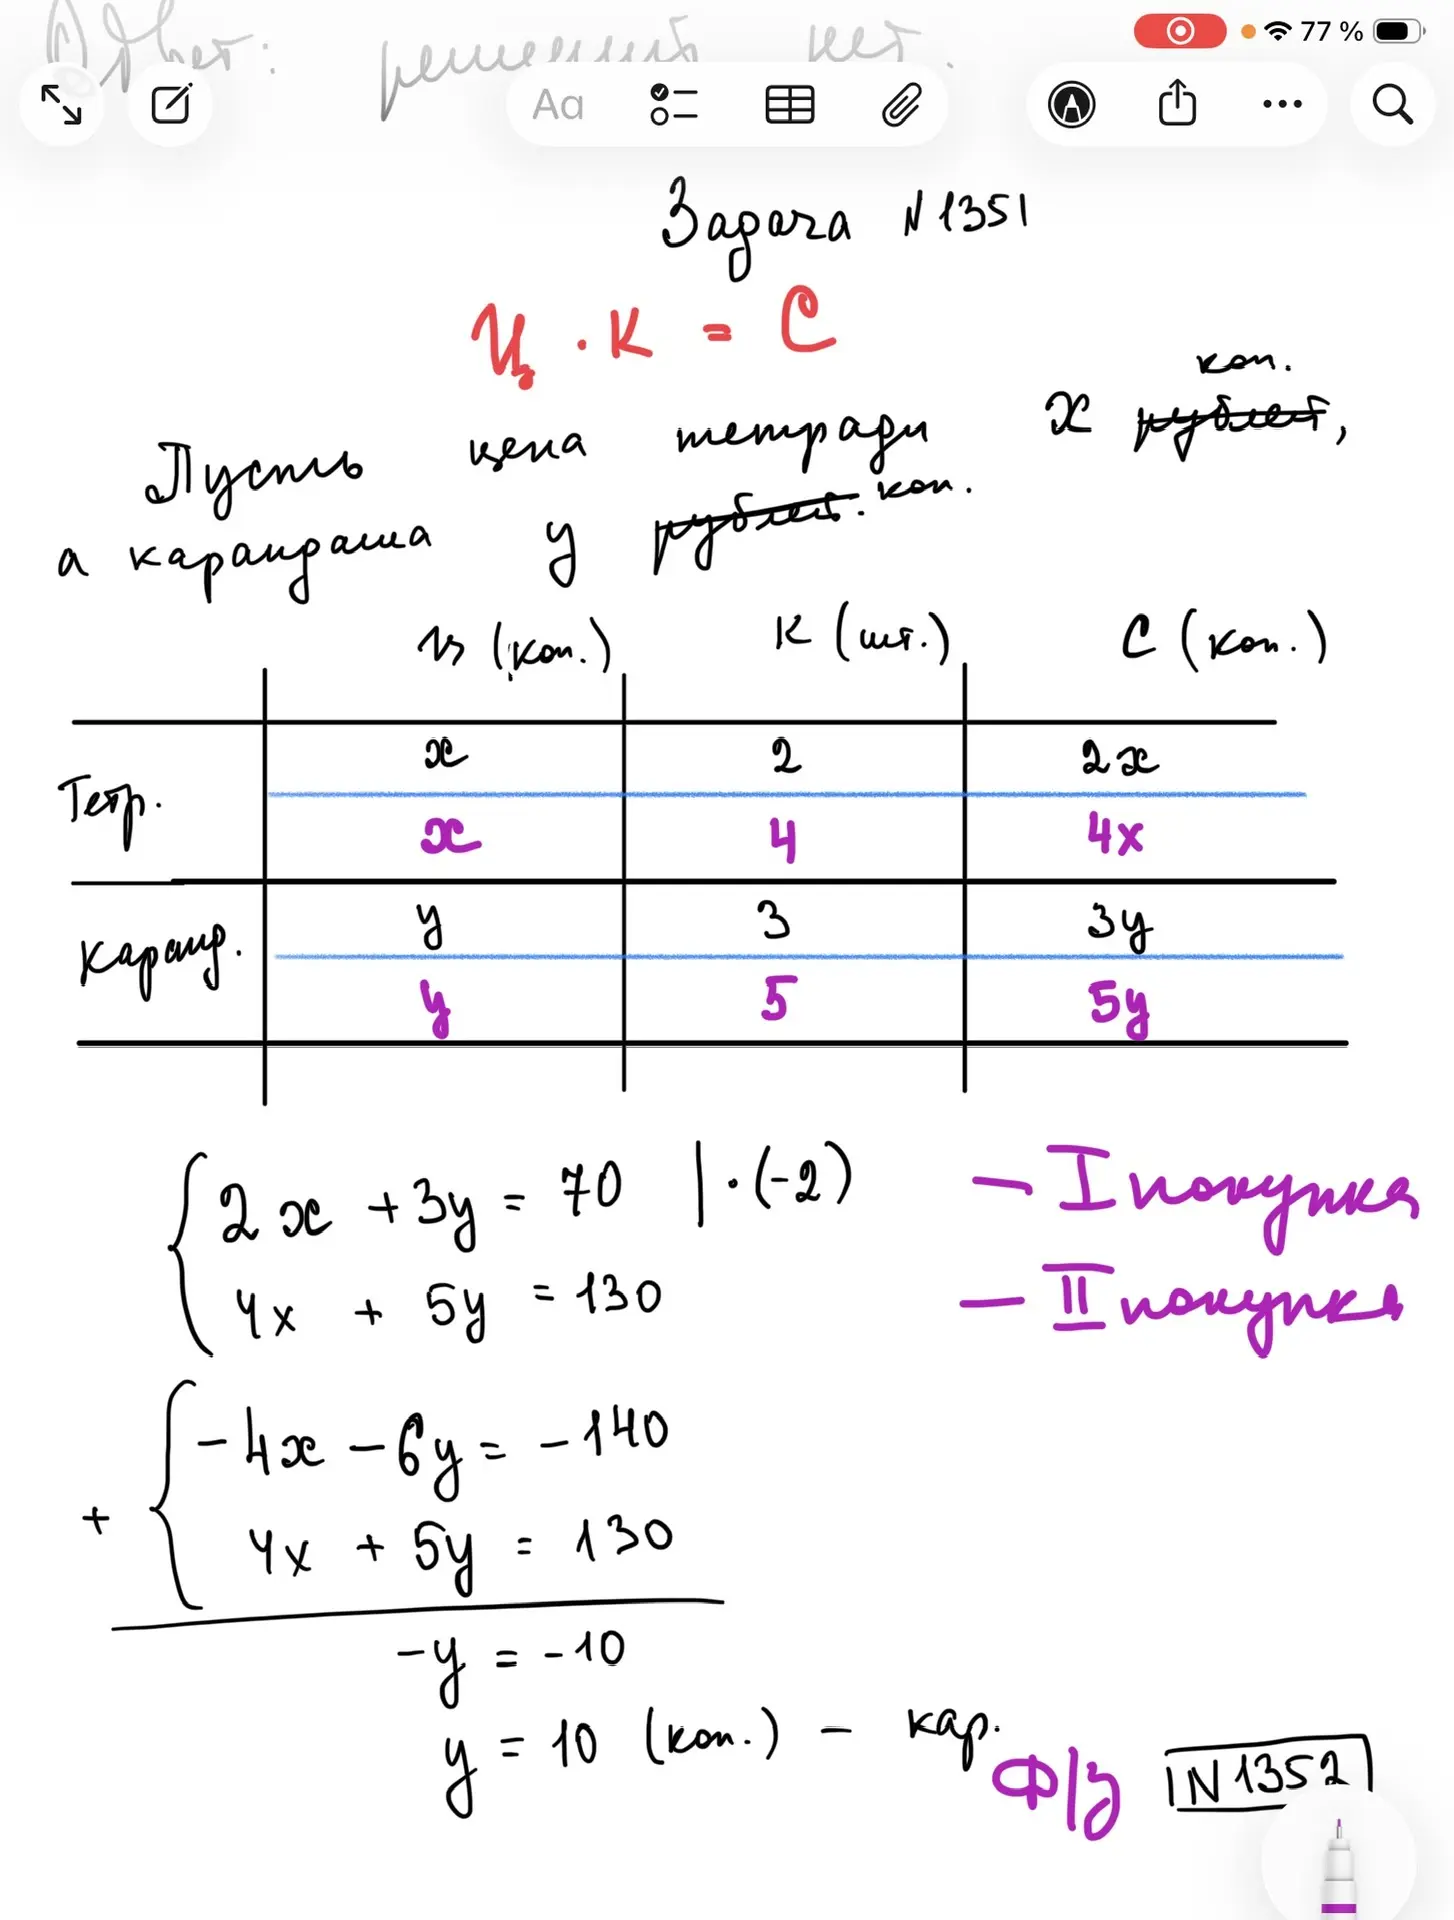 Ответ: решений нет.
77 %
Aa
Задача N1351
Ц · К = С
коп.
Пусть цена тетради x рублей,
а карандаша y рублей. коп.
Ц (коп.) К (шт.) С (коп.)
Тетр. x 2 2x
x 4 4x
Каранд. y 3 3y
y 5 5y
2x + 3y = 70 | · (-2) — I покупка
4x + 5y = 130 — II покупка
-4x - 6y = -140
+
4x + 5y = 130
-y = -10
y = 10 (коп.) — кар.
Ф/з N1352